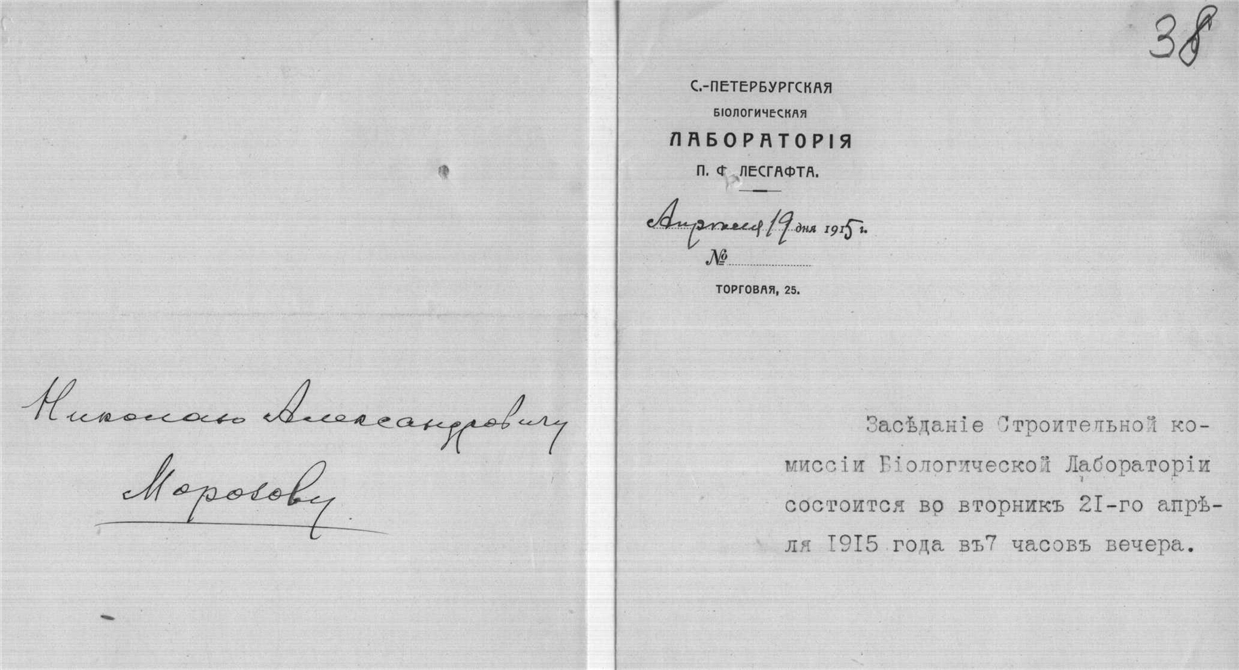 Николаю Александровичу
Морозову.
38
С.-ПЕТЕРБУРГСКАЯ
БІОЛОГИЧЕСКАЯ
ЛАБОРАТОРІЯ
П. Ф ЛЕСГАФТА.
Апрѣля 19 дня 1915 г.
№
ТОРГОВАЯ, 25.
Засѣданіе Строительной ко-
миссіи Біологической Лабораторіи
состоится во вторникъ 2I-го апрѣ-
ля I9I5 года въ7 часовъ вечера.